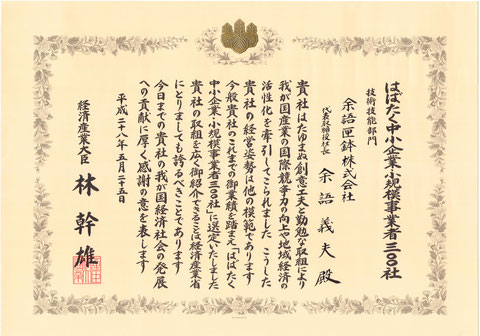 はばたく中小企業・小規模事業者三〇〇社
技術技能部門
余語匣鉢株式会社
代表取締役社長 余語義夫殿
貴社はたゆまぬ創意工夫と勤勉な取組により
我が国産業の国際競争力の向上や地域経済の
活性化を牽引してこられました こうした
貴社の経営姿勢は他の模範であります
今般貴社のこれまでの御業績を踏まえ「はばたく
中小企業・小規模事業者三〇〇社」に選定いたしました
貴社の取組を広く御紹介できることは経済産業省
にとりましても誇るべきことであります
今日までの貴社の我が国経済社会の発展
への貢献に厚く感謝の意を表します
平成二十八年五月二十五日
経済産業大臣 林幹雄